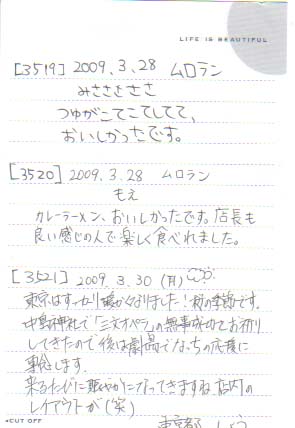 LIFE IS BEAUTIFUL
[3519] 2009.3.28 ムロラン
みささささ
つゆがこてこてしてて、
おいしかったです。
[3520] 2009.3.28 ムロラン
もえ
カレーラーメン、おいしかったです。店長も
良い感じの人で楽しく食べれました。
[3521] 2009.3.30 (月)
東京はすっかり暖かくなりました！桜の季節です。
中島神社で「三文オペラ」の無事成功をお祈り
してきたので後は劇場で の応援に
専念します。
来るたびに賑やかになってきますね店内の
レイアウトが(笑)
東京都
◂CUT OFF